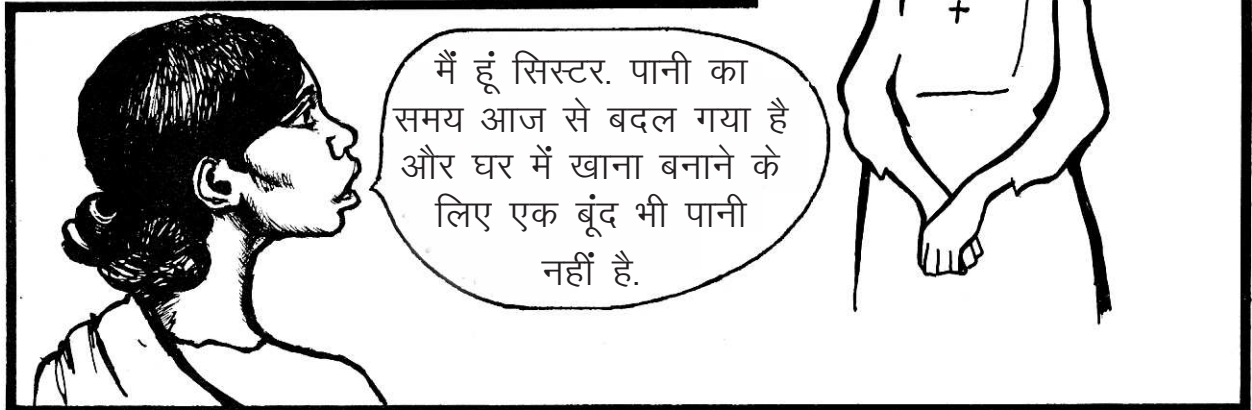 मैं हूं सिस्टर. पानी का
समय आज से बदल गया है
और घर में खाना बनाने के
लिए एक बूंद भी पानी
नहीं है.